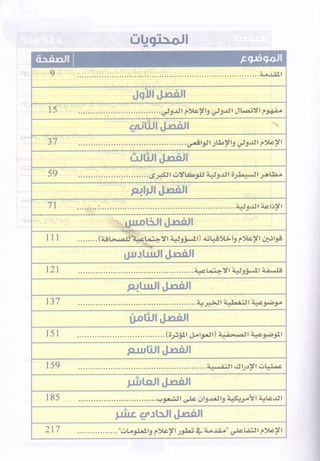 المحتويات
الموضوع الصفحة
المقدمة 9
الفصل الأول
مفهوم الاتصال الدولي والإعلام الدولي 15
الفصل الثاني
الإعلام الدولي والإطار الواقعي 37
الفصل الثالث
مظاهر السيطرة الدولية للوكالات الكبرى 59
الفصل الرابع
الإذاعة الدولية 71
الفصل الخامس
قوانين الإعلام وأخلاقياته (المسؤولية الاجتماعية للصحافة) 111
الفصل السادس
فلسفة المسؤولية الاجتماعية 121
الفصل السابع
موضوعية التغطية الخبرية 137
الفصل الثامن
الموضوعية الصحفية (العوامل المؤثرة) 151
الفصل التاسع
عمليات الإدراك النفسية 159
الفصل العاشر
الدعاية الأمريكية والعدوان على الشعوب 185
الفصل الحادي عشر
الإعلام التفاعلي "مقدمة في تطور الإعلام والمعلومات" 217